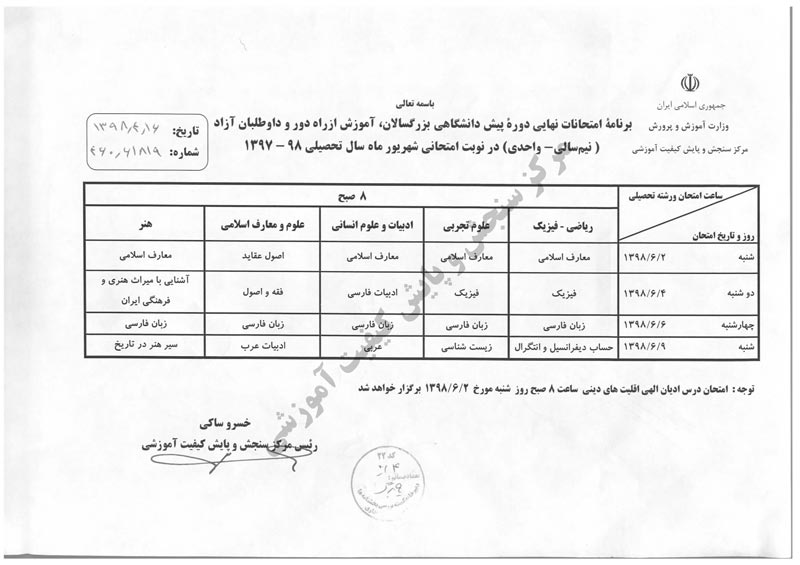 باسمه تعالی
جمهوری اسلامی ایران
وزارت آموزش و پرورش
مرکز سنجش و پایش کیفیت آموزشی
برنامۀ امتحانات نهایی دورۀ پیش دانشگاهی بزرگسالان، آموزش ازراه دور و داوطلبان آزاد
( نیم‌سالی– واحدی) در نوبت امتحانی شهریور ماه سال تحصیلی ۹۸ – ۱۳۹۷
تاریخ: ۱۳۹۸,۴,۱۶
شماره:
ساعت امتحان ورشته تحصیلی
۸ صبح
روز و تاریخ امتحان
ریاضی - فیزیک
علوم تجربی
ادبیات و علوم انسانی
علوم و معارف اسلامی
هنر
شنبه ۱۳۹۸/۶/۲ معارف اسلامی معارف اسلامی معارف اسلامی اصول عقاید معارف اسلامی
دو شنبه ۱۳۹۸/۶/۴ فیزیک فیزیک ادبیات فارسی فقه و اصول آشنایی با میراث هنری و
فرهنگی ایران
چهارشنبه ۱۳۹۸/۶/۶ زبان فارسی زبان فارسی زبان فارسی زبان فارسی زبان فارسی
شنبه ۱۳۹۸/۶/۹ حساب دیفرانسیل و انتگرال زیست شناسی عربی ادبیات عرب سیر هنر در تاریخ
توجه : امتحان درس ادیان الهی اقلیت های دینی ساعت ۸ صبح روز شنبه مورخ ۱۳۹۸/۶/۲ برگزار خواهد شد
خسرو ساکی
رئیس مرکز سنجش و پایش کیفیت آموزشی
مرکز سنجش و پایش کیفیت آموزشی
کد ۲۲